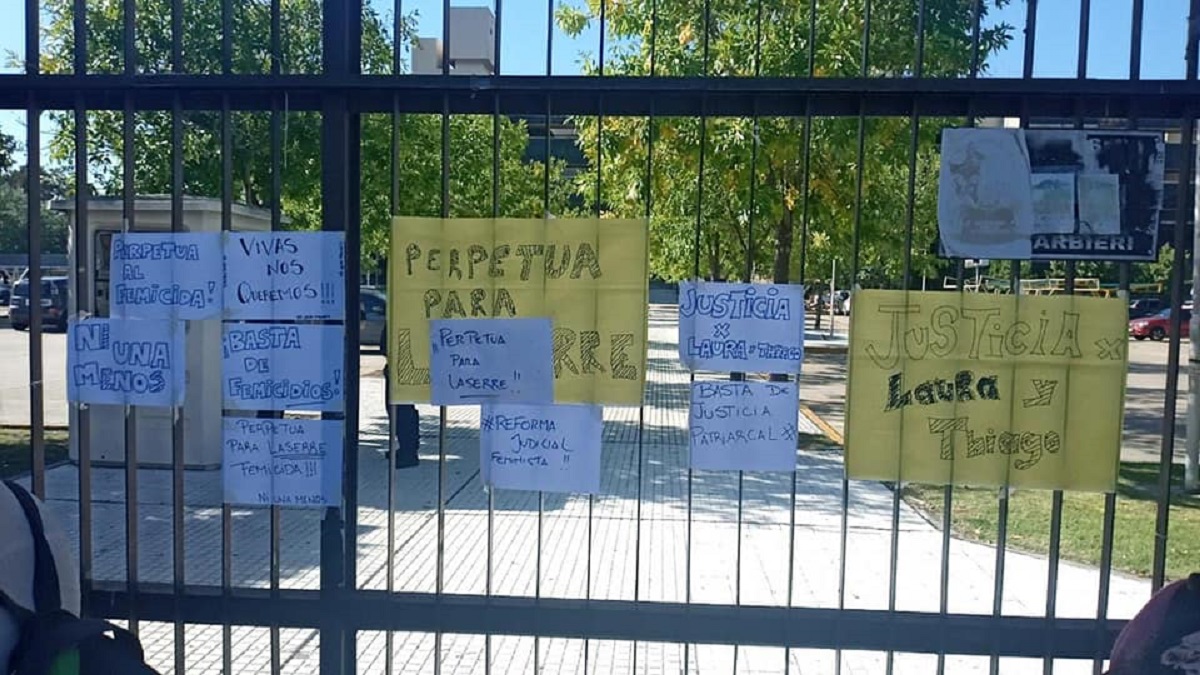 PERPETUA
AL
FEMICIDA!
VIVAS
NOS
QUEREMOS!!!
NI UNA
MENOS
¡BASTA
DE
FEMICIDIOS!
PERPETUA
PARA LASERRE
FEMICIDA!!!
NI UNA MENOS
PERPETUA
PARA
L ERRE
PERPETUA
PARA
LASERRE!!
#REFORMA
JUDICIAL
FEMINISTA!!
JUSTICIA
X
LAURA Y THIAGO
BASTA DE
JUSTICIA
PATRIARCAL
ARBIERI
JUSTICIA x
Laura y
Thiago